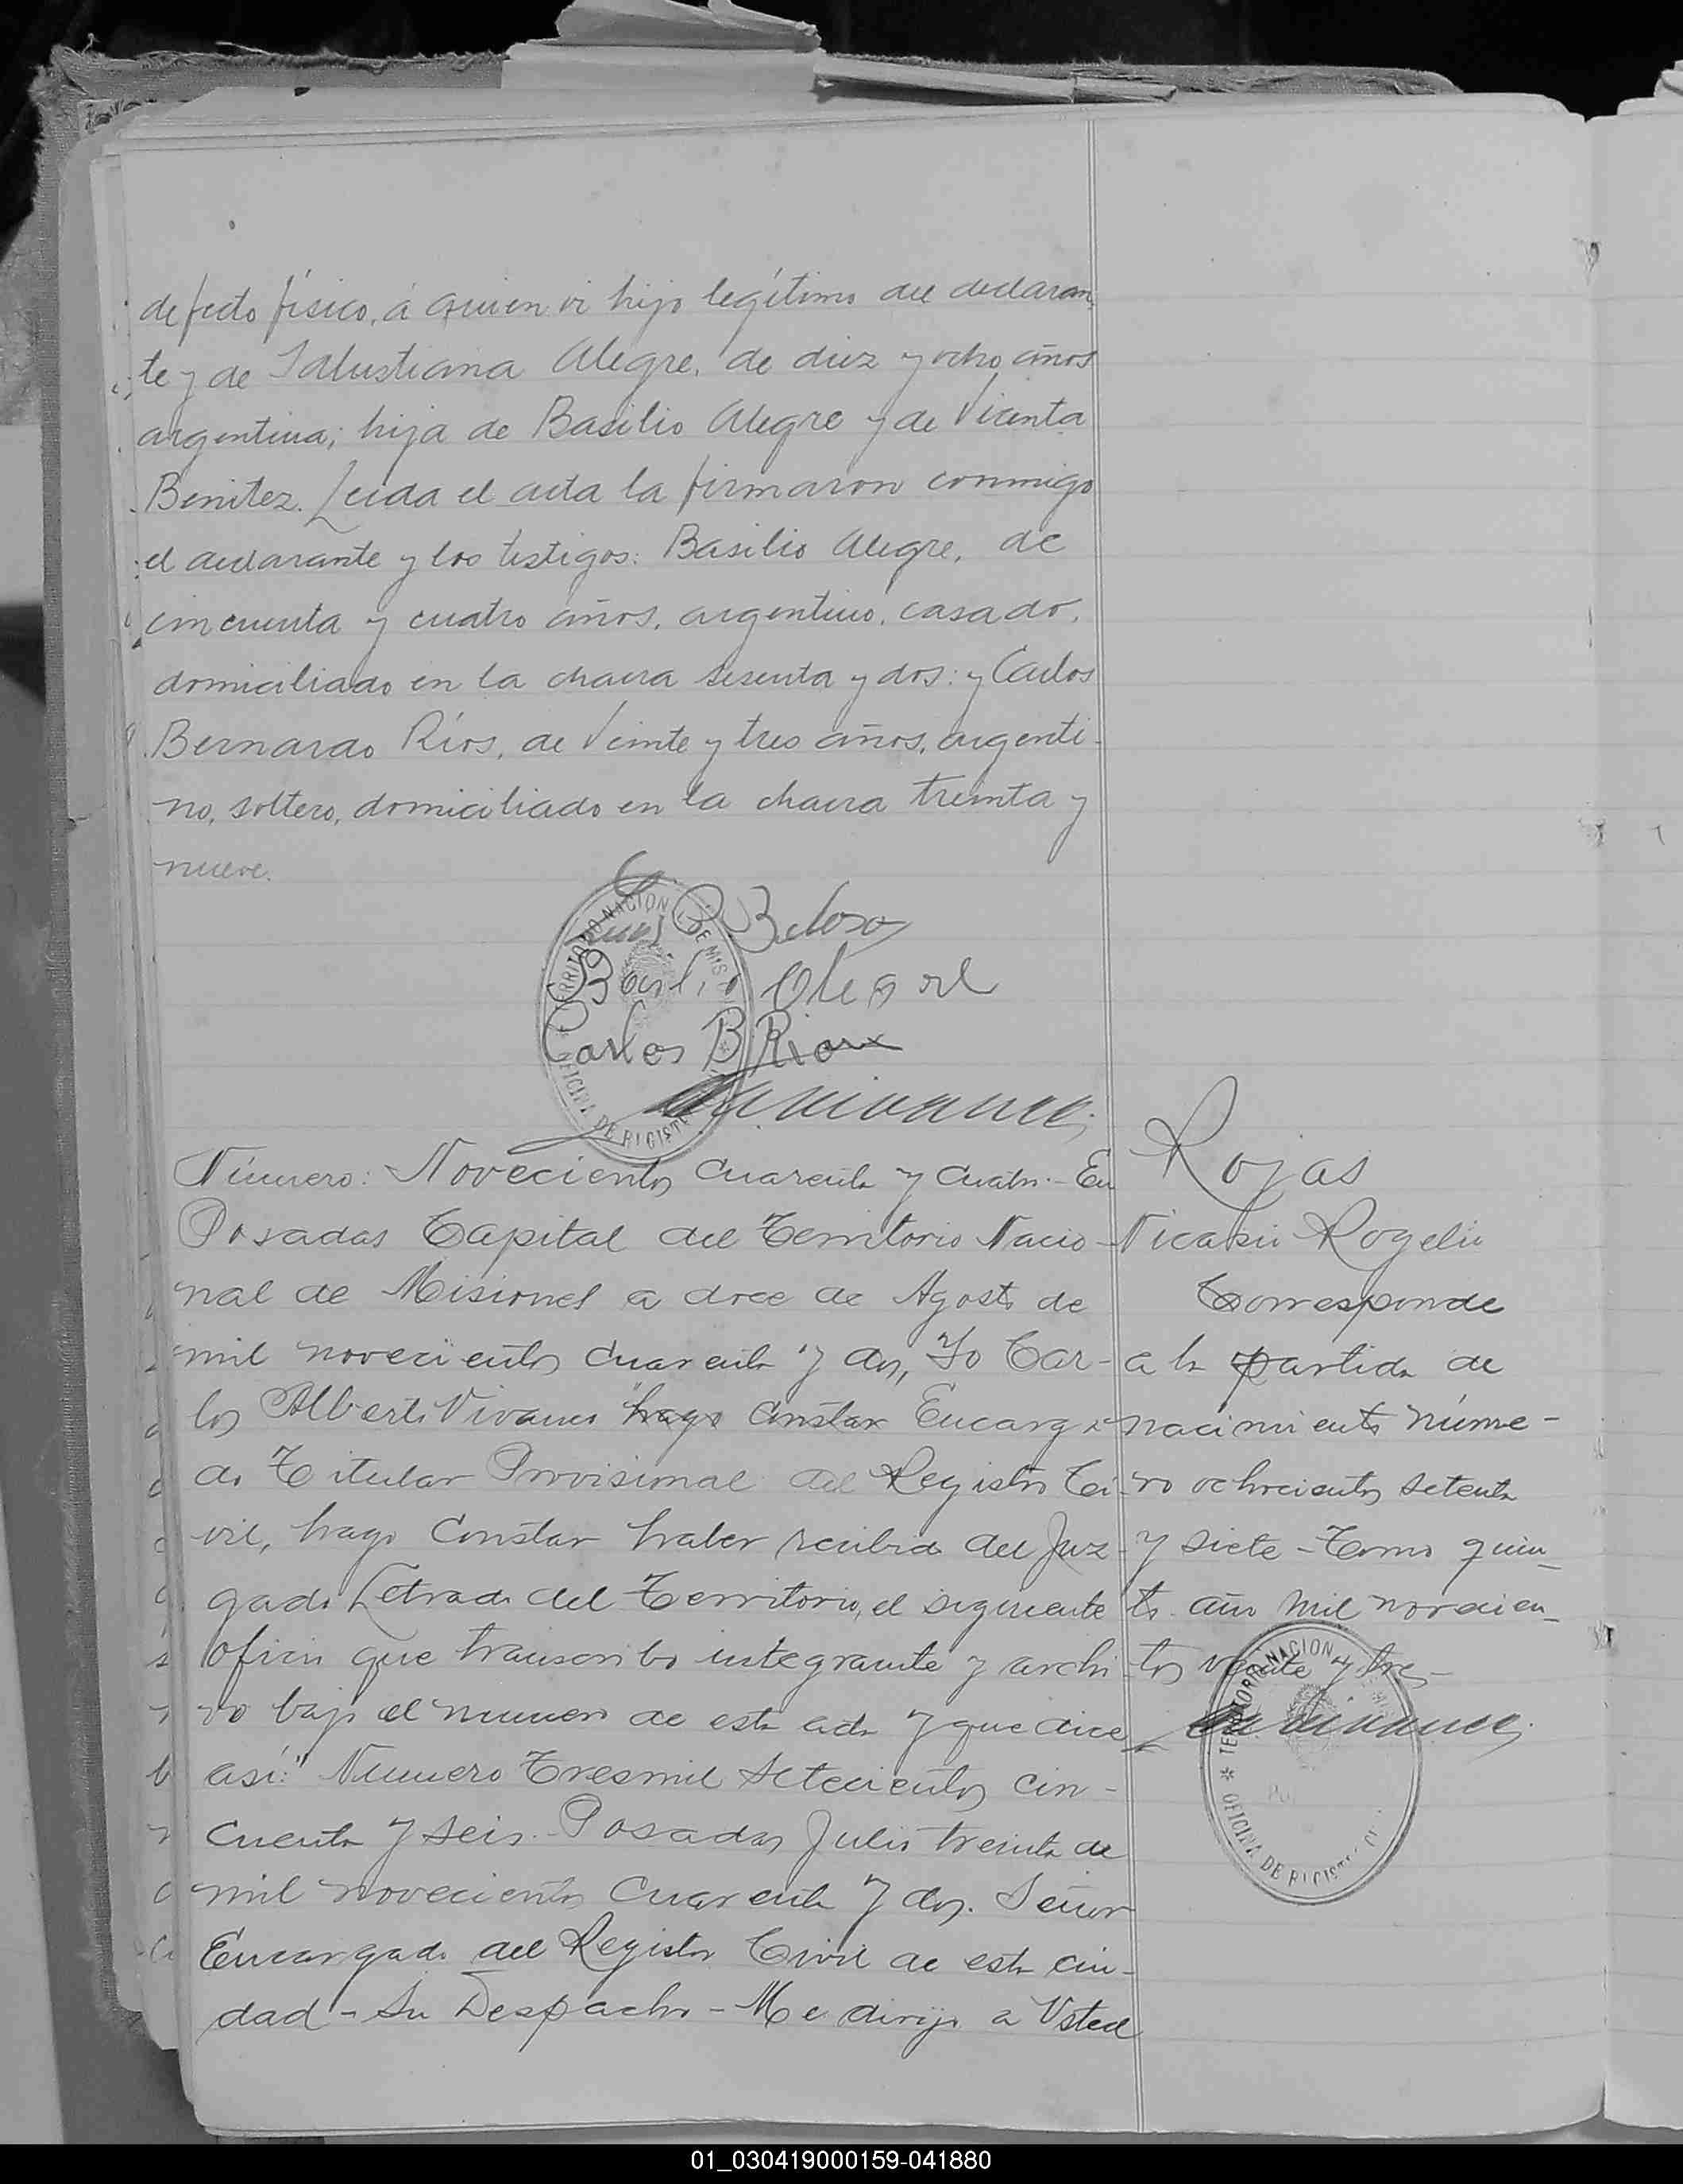 defecto físico, á quien vi hijo legítimo del declaran-
te y de Salustiana Alegre, de diez y ocho años
argentina; hija de Basilio Alegre y de Vicenta
Benitez. Leida el acta la firmaron conmigo
el declarante y los testigos: Basilio Alegre, de
cincuenta y cuatro años, argentino, casado,
domiciliado en la chacra sesenta y dos: y Carlos
Bernardo Ríos, de Veinte y tres años, argenti-
no, soltero, domiciliado en la chacra treinta y
nueve.
Basilio Alegre
Carlos B Rios
Número: Novecientos cuarenta y cuatro.- En
Posadas Capital del Territorio Nacio-
nal de Misiones a doce de Agosto de
mil novecientos cuarenta y dos, Yo Car-
los Alberto Vivanco hago constar Encarga-
do Titular Provisional del Registro Ci-
vil, hago constar haber recibido del Juz-
gado Letrado del Territorio, el siguiente
oficio que transcribo integramente y archi-
vo bajo el numero de esta acta y que dice
así:" Numero Tresmil setecientos cin-
cuenta y seis.- Posadas Julio treinta de
mil novecientos cuarenta y dos. Señor
Encargado del Registro Civil de esta ciu-
dad - Su Despacho - Me dirijo a Usted
Rojas
Nicasio Rogelio
Corresponde
a la partida de
nacimiento núme-
ro ochocientos setenta
y siete - Tomo quin-
to año mil novecien-
tos veinte y tres-
TERRITORIO NACIONAL DE MIS
OFICINA DE REGISTRO
01_030419000159-041880